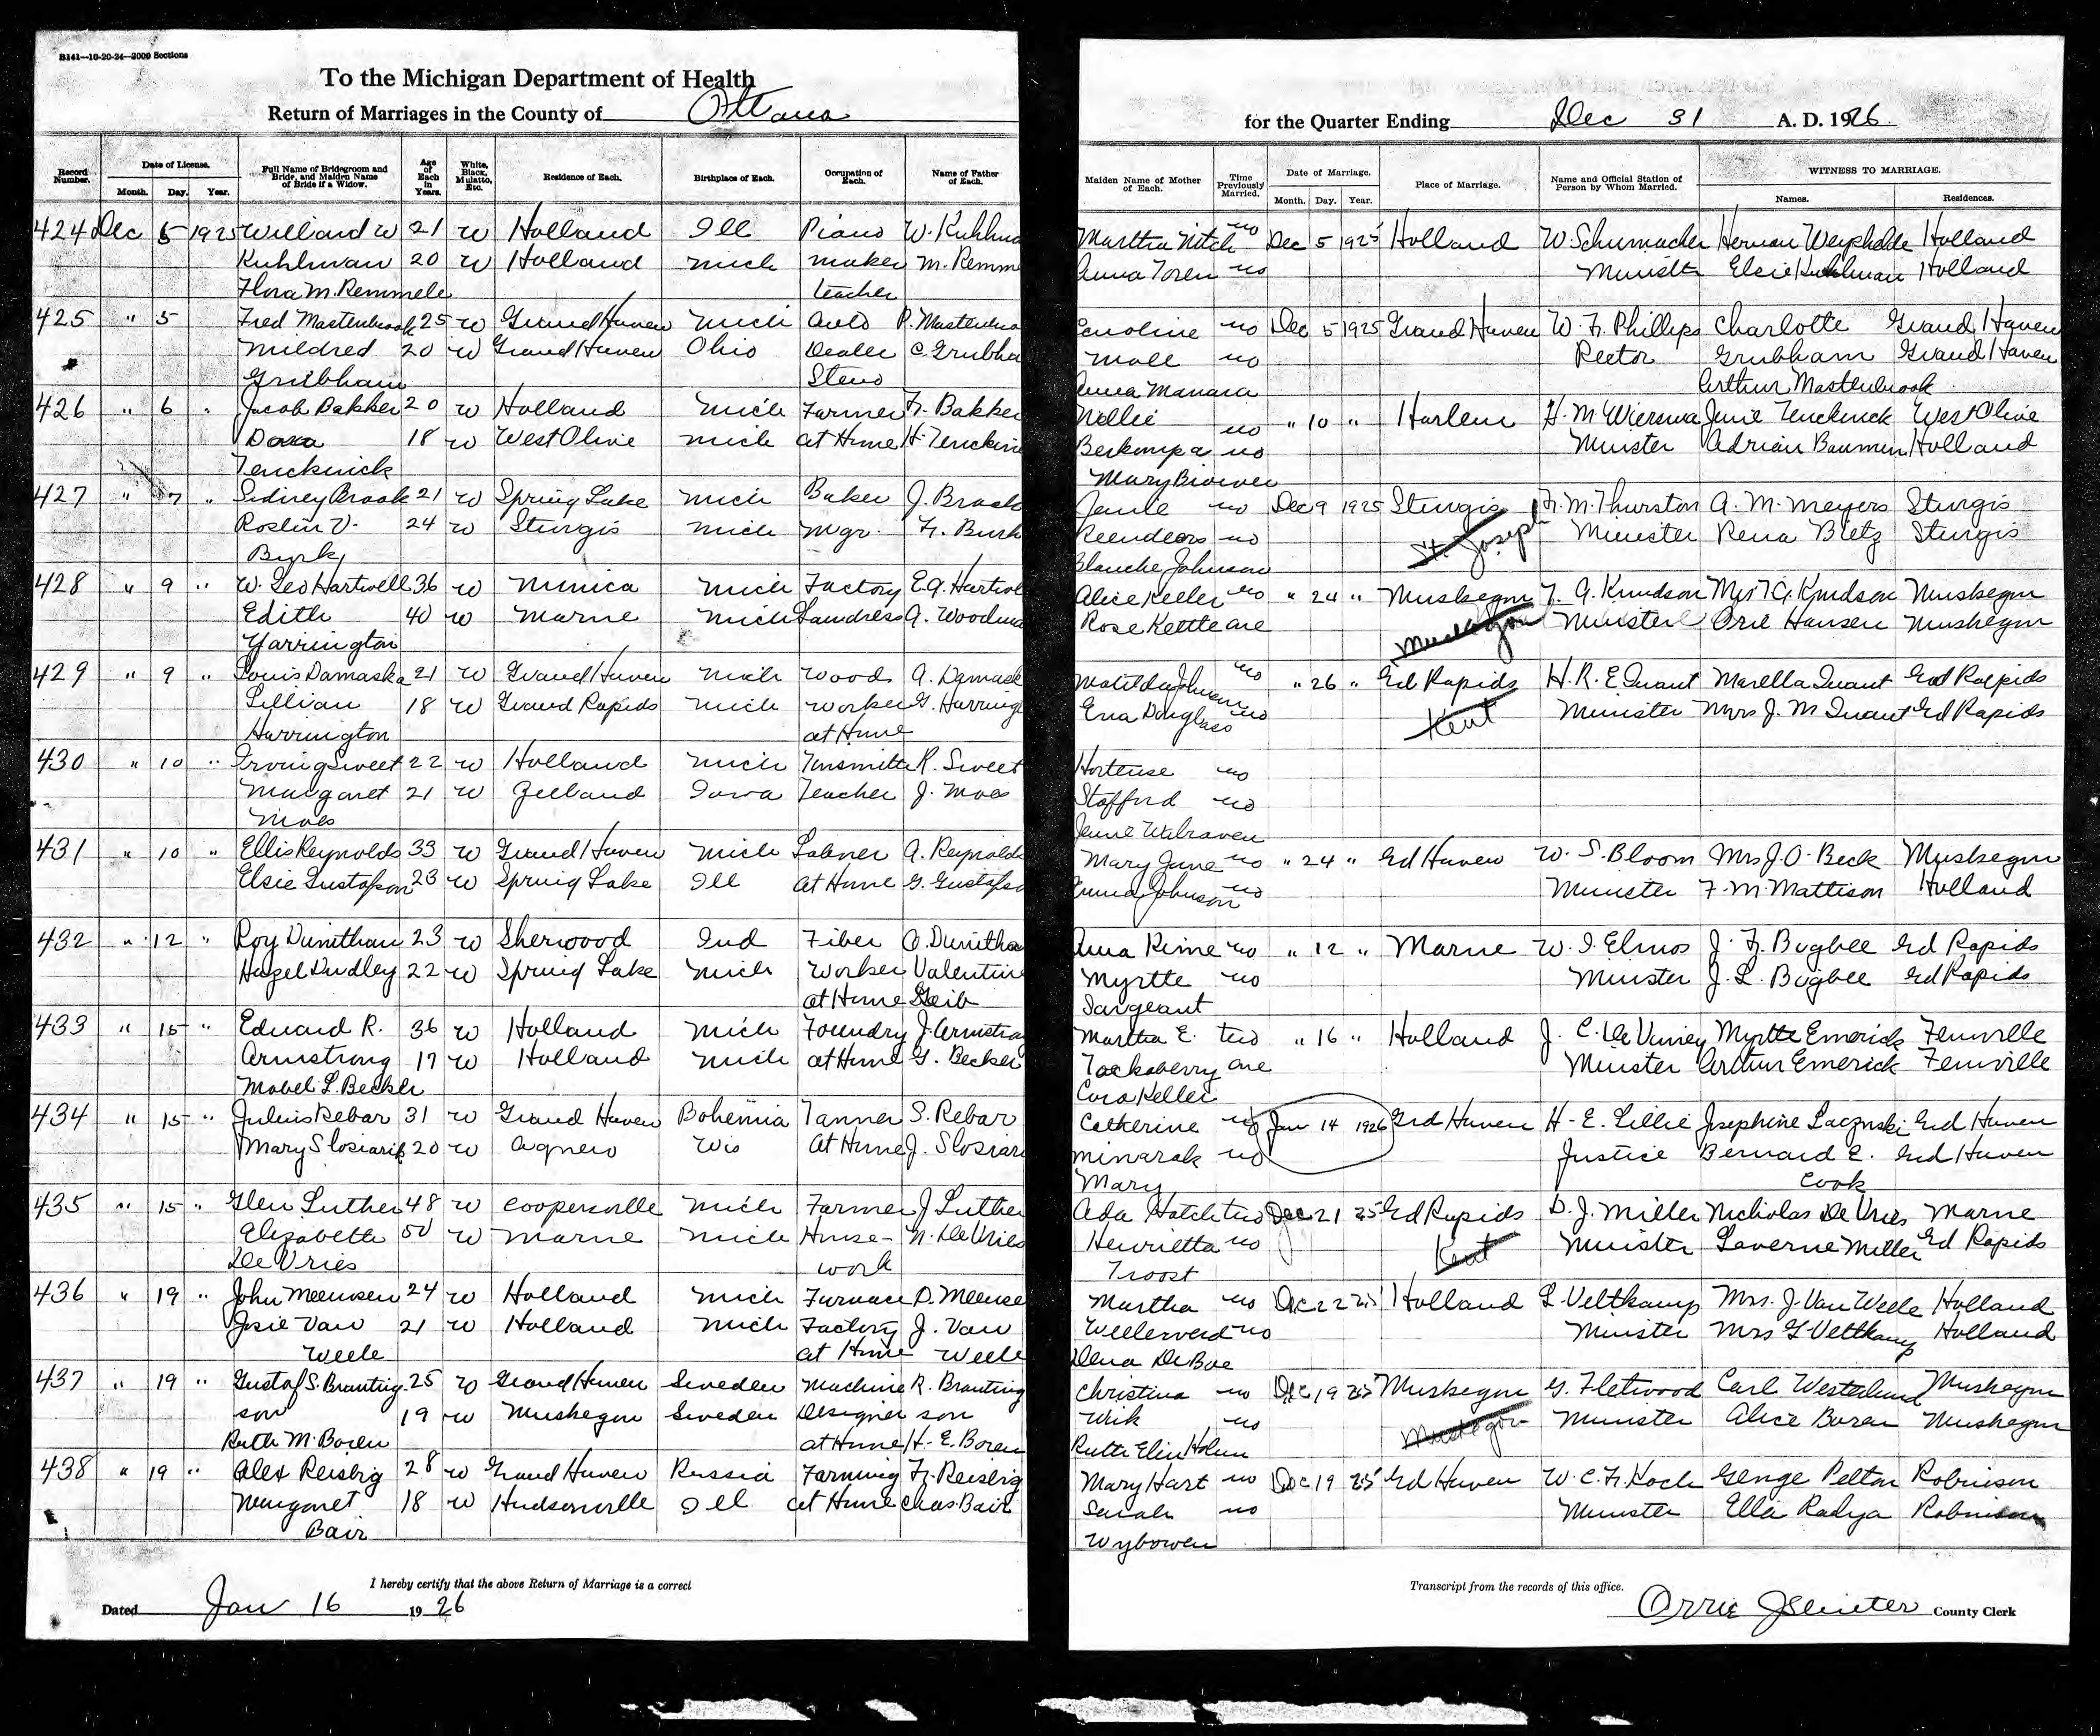 B141—10-20-24—2000 Sections
To the Michigan Department of Health
Return of Marriages in the County of Ottawa
for the Quarter Ending Dec 31 A. D. 1926.
Record Number. Date of License. Month. Day. Year. Full Name of Bridegroom and Bride, and Maiden Name of Bride if a Widow. Age of Each in Years. White, Black, Mulatto, Etc. Residence of Each. Birthplace of Each. Occupation of Each. Name of Father of Each.
Maiden Name of Mother of Each. Time Previously Married. Date of Marriage. Month. Day. Year. Place of Marriage. Name and Official Station of Person by Whom Married. WITNESS TO MARRIAGE. Names. Residences.
424 Dec 5 1925 Willard W 21 W Holland Ill Piano W. Kuhlma Martha Nitch no Dec 5 1925 Holland W. Schumacher Herman Holland
Kuhlman 20 W Holland Mich maker M. Remme Anna Toren no Minister Elsie Kuhlman Holland
Flora M. Remmele teacher
425 " 5 Fred Mastenbrook 25 W Grand Haven Mich Auto P. Mastenbro Caroline no Dec 5 1925 Grand Haven W. H. Phillips Charlotte Grand Haven
Mildred 20 W Grand Haven Ohio Dealer C. Grubha Moll no Rector Grubham Grand Haven
Grubham Steno Anna Manara Arthur Mastenbrook
426 " 6 " Jacob Bakker 20 W Holland Mich Farmer H. Bakker Nellie no " 10 " Harlem H. M. Wiersma Junie West Olive
18 W West Olive Mich at Home H. Berkompa no Minister Adrian Holland
Mary
427 " 7 " Sidney Braak 21 W Spring Lake Mich Baker J. Braak no Dec 9 1925 Sturgis H. M. Thurston A. M. Meyers Sturgis
Roslin V. 24 W Sturgis Mich Mgr. H. Burk Reenders no St Joseph Minister Rena Bletz Sturgis
Blanche Johnson
428 " 9 " W. Leo Hartwell 36 W Nunica Mich Factory E. A. Hartwel Alice Keller no " 24 " Muskegon T. G. Knudson Mrs T. G. Knudson Muskegon
Edith 40 W Marne Mich Laundress A. Woodma Rose Kettle one Muskegon Minister Orie Hansen Muskegon
Yarrington
429 " 9 " Louis Damaska 21 W Grand Haven Mich Wood A. Damask Matilda Johnson no " 26 " Gd Rapids H. R. E. Quant Marella Quant Grd Rapids
Lillian 18 W Grand Rapids Mich worker G. Harring Ena Douglass no Kent Minister Mrs J. M Quant Gd Rapids
Harrington at Home
430 " 10 " Irving Sweet 22 W Holland Mich Tinsmith R. Sweet Hortense no
Margaret 21 W Zeeland Iowa Teacher J. Moes Stafford no
Moes Jennie Walraven
431 " 10 " Ellis Reynolds 33 W Grand Haven Mich Laborer A. Reynolds Mary Jane no " 24 " Gd Haven W. S. Bloom Mrs J. O. Beck Muskegon
Elsie Gustafson 23 W Spring Lake Ill At Home G. Gustafso Emma Johnson no Minister F. M. Mattison Holland
432 " 12 " Roy Dunithan 23 W Sherwood Ind Fiber O. Dunitha Ama Rime no " 12 " Marne W. I. Elmos J. H. Bugbee Grd Rapids
Hazel Dudley 22 W Spring Lake Mich Worker Valentine Myrtte no Minister J. L. Bugbee Grd Rapids
at Home Geib Sargeant
433 " 15 " Eduard R. 36 W Holland Mich Foundry J. Armstron Martha E. two " 16 " Holland J. C. DeVinney Myrtle Emerick Fennville
Armstrong 17 W Holland Mich at Home G. Becker Tackaberry one Minister Arthur Emerick Fennville
Mabel L. Becker Cora Keller
434 " 15 " Julius Rebar 31 W Grand Haven Bohemia Tanner S. Rebar Catherine no Jan 14 1926 Grd Haven H. E. Lillie Josephine Laczynski Grd Haven
Mary Slosiarik 20 W Agnew Wis At Home J. Slosiar Minarak no Justice Bernard E. Grd Haven
Mary Cook
435 " 15 " Glen Luther 48 W Coopersville Mich Farmer J Luther Ada Hatch two Dec 21 25 Gd Rapids D. J. Miller Nicholas De Vries Marne
Elizabeth 50 W Marne Mich House- N. DeVries Henrietta no Kent Minister Laverne Miller Gd Rapids
De Vries work Troost
436 " 19 " John Meeusen 24 W Holland Mich Furnace D. Meeuse Martha no Dec 22 25 Holland L. Veltkamp Mrs. J. Van Weele Holland
Josie Van 21 W Holland Mich Factory J. Van no Minister Mrs L. Veltkamp Holland
Weele at Home Weele Dena De Boe
437 " 19 " Gustaf S. Branting 25 W Grand Haven Sweden Machine R. Branting Christina no Dec 19 25 Muskegon G. Fletwood Carl Westerlund Muskegon
son 19 W Muskegon Sweden Designer son Wik no Muskegon Minister Alice Boren Muskegon
Ruth M. Boren at Home H. E. Boren Ruth Elin Holm
438 " 19 " Alex Reisbig 28 W Grand Haven Russia Farming H. Reisbig Mary Hart no Dec 19 25 Gd Haven W. C. H. Koch George Pelton Robinson
Margaret 18 W Hudsonville Ill At Home Chas Bair Sarah no Minister Ella Radya Robinson
Bair Wybowen
I hereby certify that the above Return of Marriage is a correct
Transcript from the records of this office.
Dated Jan 16 1926
Orrie J Sluiter County Clerk